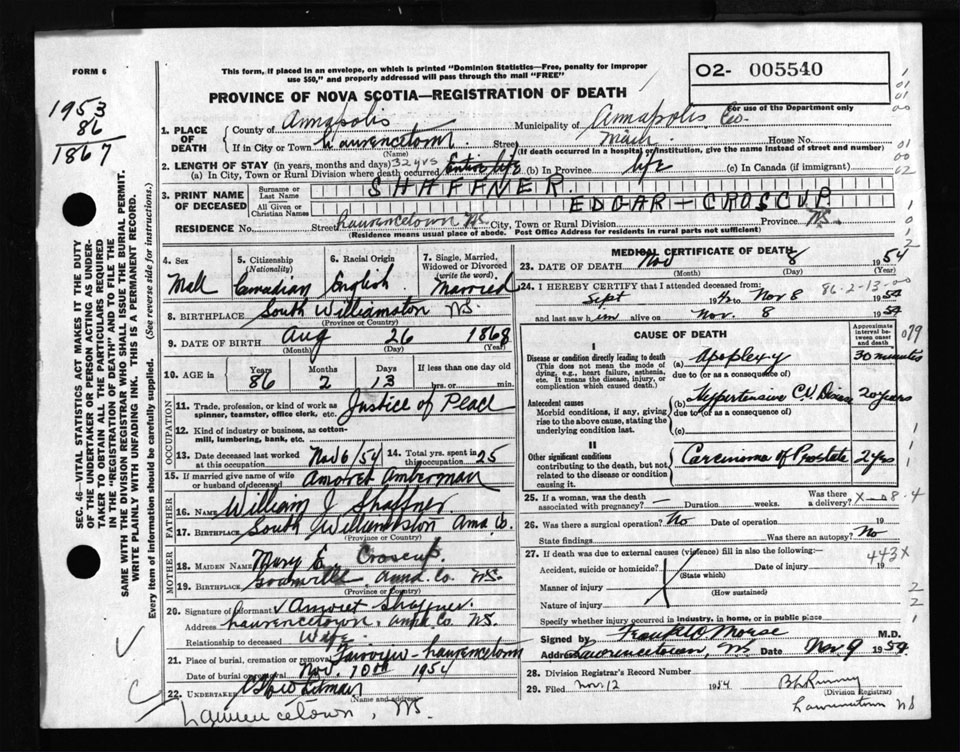 FORM 6
This form, if placed in an envelope, on which is printed "Dominion Statistics—Free, penalty for improper
use $50," and properly addressed will pass through the mail "FREE"
02- 005540
PROVINCE OF NOVA SCOTIA—REGISTRATION OF DEATH
For use of the Department only
1953
86
1867
1. PLACE OF DEATH
County of Annapolis Municipality of Annapolis Co.
If in City or Town Lawrencetown Street Main House No.
(Name) (If death occurred in a hospital or institution, give the name instead of street and number)
2. LENGTH OF STAY (in years, months and days) 32 yrs
(a) In City, Town or Rural Division where death occurred Entire life (b) In Province life (c) In Canada (if immigrant)
3. PRINT NAME OF DECEASED
Surname or Last Name SHAFFNER.
All Given or Christian Names EDGAR—CROSCUP.
RESIDENCE No. Street Lawrencetown NS City, Town or Rural Division Province NS.
(Residence means usual place of abode. Post Office Address for residents in rural parts not sufficient)
4. Sex
Male
5. Citizenship (Nationality)
Canadian
6. Racial Origin
English
7. Single, Married, Widowed or Divorced (write the word)
Married
8. BIRTHPLACE South Williamston NS.
(Province or Country)
9. DATE OF BIRTH Aug 26 1868
(Month) (Day) (Year)
10. AGE in Years 86 Months 2 Days 13 If less than one day old hrs. or min.
OCCUPATION
11. Trade, profession, or kind of work as spinner, teamster, office clerk, etc. Justice of Peace
12. Kind of industry or business, as cotton-mill, lumbering, bank, etc.
13. Date deceased last worked at this occupation Nov 6/54 14. Total yrs. spent in this occupation 25
15. If married give name of wife or husband of deceased
FATHER
16. Name William J Shaffner.
17. Birthplace South Williamston Anna. Co.
(Province or Country)
MOTHER
18. Maiden Name Mary E Croscup
19. Birthplace Granville, Anna. Co. NS.
(Province or Country)
20. Signature of informant Shaffner
Address Lawrencetown, Anna Co. NS.
Relationship to deceased Wife
21. Place of burial, cremation or removal Fairview - Lawrencetown
Date of burial or removal Nov. 10th 1954
22. Undertaker
(Name and address)
Lawrencetown, NS.
MEDICAL CERTIFICATE OF DEATH
23. DATE OF DEATH Nov 8 1954
(Month) (Day) (Year)
24. I HEREBY CERTIFY that I attended deceased from:
86-2-13-00
Sept 1954 to Nov 8 1954
and last saw him alive on Nov. 8 1954
CAUSE OF DEATH
Approximate interval between onset and death
079
I
Disease or condition directly leading to death
(This does not mean the mode of dying, e.g., heart failure, asthenia, etc. It means the disease, injury, or complication which caused death.)
(a) Apoplexy 30 minutes
due to (or as a consequence of)
Antecedent causes
Morbid conditions, if any, giving rise to the above cause, stating the underlying condition last.
(b) Hypertensive C.V. Disease 20 years
due to (or as a consequence of)
(c)
II
Other significant conditions
contributing to the death, but not related to the disease or condition causing it.
Carcinoma of Prostate 2 yrs
25. If a woman, was the death associated with pregnancy? — Duration Was there a delivery? X—8-4
26. Was there a surgical operation? No Date of operation 19
State findings Was there an autopsy? No
27. If death was due to external causes (violence) fill in also the following:—
443X
Accident, suicide or homicide? Date of injury 19
(State which)
Manner of injury
(How sustained)
Nature of injury
Specify whether injury occurred in industry, in home, or in public place
Signed by Frank O Morse M.D.
Address Lawrencetown, NS Date Nov 9 1954
28. Division Registrar's Record Number
29. Filed Nov. 12 1954
(Division Registrar)
Lawrencetown NS
SEC. 46—VITAL STATISTICS ACT MAKES IT THE DUTY
OF THE UNDERTAKER OR PERSON ACTING AS UNDER-
TAKER TO OBTAIN ALL THE PARTICULARS REQUIRED
IN THE "REGISTRATION OF DEATH" AND TO FILE THE
SAME WITH THE DIVISION REGISTRAR WHO SHALL ISSUE THE BURIAL PERMIT.
WRITE PLAINLY WITH UNFADING INK. THIS IS A PERMANENT RECORD.
Every item of information should be carefully supplied. (See reverse side for instructions.)